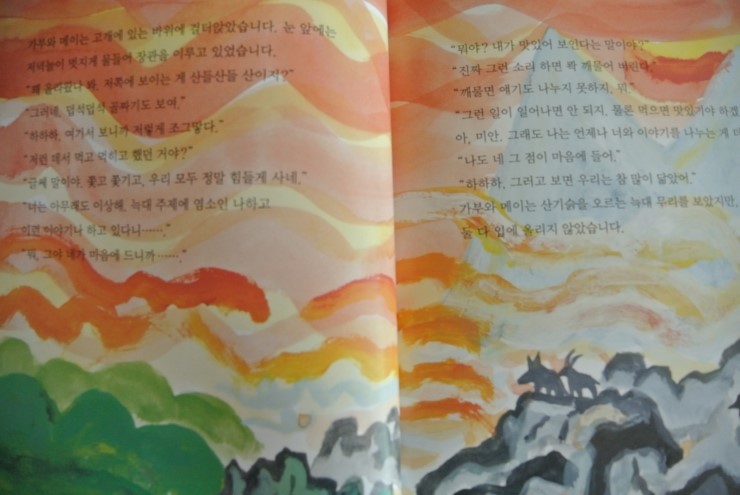 가부와 메이는 고개에 있는 바위에 걸터앉았습니다. 눈 앞에는
저녁놀이 멋지게 물들어 장관을 이루고 있었습니다.
"꽤 올라왔나 봐. 저쪽에 보이는 게 산들산들 산이지?"
"그러네. 덥석덥석 골짜기도 보여."
"하하하, 여기서 보니까 저렇게 조그맣다."
"저런 데서 먹고 먹히고 했던 거야?"
"글쎄 말이야. 쫓고 쫓기고, 우리 모두 정말 힘들게 사네."
"너는 아무래도 이상해. 늑대 주제에 염소인 나하고
이런 이야기나 하고 있다니……."
"뭐, 그야 네가 마음에 드니까……."
"뭐야? 내가 맛있어 보인다는 말이야?"
"진짜 그런 소리 하면 콱 깨물어 버린다."
"깨물면 얘기도 나누지 못하지, 뭐."
"그런 일이 일어나면 안 되지. 물론 먹으면 맛있기야 하겠
아, 미안. 그래도 나는 언제나 너와 이야기를 나누는 게 더
"나도 네 그 점이 마음에 들어."
"하하하, 그러고 보면 우리는 참 많이 닮았어."
가부와 메이는 산기슭을 오르는 늑대 무리를 보았지만,
둘 다 입에 올리지 않았습니다.